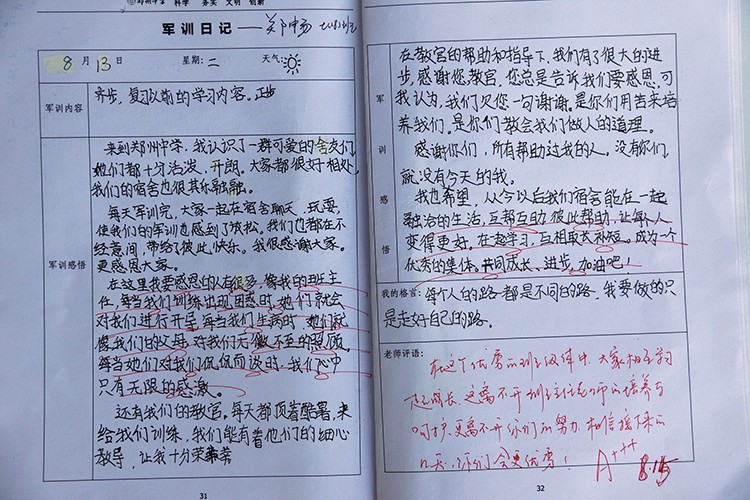 郑州中学 科学 务实 文明 创新
军训日记
8月13日 星期:二 天气:
军训内容
齐步,复习以前的学习内容。正步
军训感悟
来到郑州中学,我认识了一群可爱的舍友们,
她们都十分活泼,开朗。大家都很好相处,
我们的宿舍也很其乐融融。
每天军训完,大家一起在宿舍聊天,玩耍,
使我们的军训也感到了放松。我们也都在不
经意间,带给了彼此快乐。我很感谢大家。
更感恩大家。
在这里我要感恩的人有很多,像我的班主
任,每当我们训练出现困惑时,她们就会
对我们进行开导,每当我们生病时,她们就
像我们的父母,对我们无微不至的照顾,
每当她们对我们侃侃而谈时,我们心中
只有无限的感激。
还有我们的教官,每天都顶着酷暑,来
给我们训练,我们能有着他们的细心
教导,让我十分荣幸
31
军训感悟
在教官的帮助和指导下,我们有了很大的进
步,感谢您,教官,您总是告诉我们要感恩,可
我认为,我们欠您一句谢谢。是你们用苦来培
养我们。是你们教会我们做人的道理。
感谢你们,所有帮助过我的人。没有你们,
就没有今天的我。
我也希望,从今以后我们宿舍能在一起
融洽的生活,互帮互助,彼此帮助,让每个人
变得更好。在起学习,互相取长补短。成为一个
优秀的集体。共同成长、进步,加油吧!
我的格言:每个人的路都是不同的路,我要做的只
是走好自己的路。
老师评语:
在这个优秀的班级集体中,大家相互学习
起成长,这离不开班主任老师的培养与
呵护,更离不开你们的努力,相信接下来的
几天,你们会更优秀!
A+++ 8.15
32